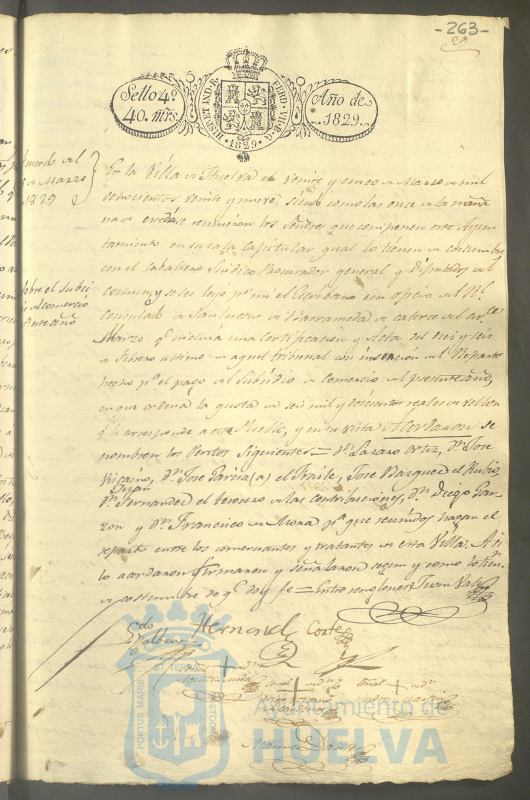 -263-
Sello 4º
40. mrs.
HISP. ET IND. R.
FERD. VII. D. G.
1829
Año de
1829.
Acuerdo del
25 Marzo
1829
En la Villa de Huelva en veinte y cinco de Marzo de mil
ochocientos veinte y nueve, siendo como las once de la maña
na de este día, se reunieron los Señores que componen este Ayun
tamiento en su sala Capitular qual lo tienen de costumbre
con el Caballero Sindico Procurador general y Diputados del
Sobre el Subsi
dio del comercio
de este año
comun, y se les leyó pr. mi el Escribano un oficio del Rl.
Consulado de Sanlucar de Barrameda de catorce del actl.
Marzo qe. incluia una certificacion y Acta del diez y seis
de Febrero ultimo de aquel tribunal con insercion del Reparto
hecho pa. el pago del Subsidio de Comercio del presente año,
en que ordena la quota de seis mil y doscientos reales de vellon
qe. le corresponde a este Pueblo, y en su vista Acordaron se
nombren los Peritos Siguientes = Dn. Lazaro Ortiz, Dn. Jose
Vizcaino, Dn. Jose Garcia (a) el Fraile, Jose Vazquez el Rubio,
Juan
Dn. Fernandez el tesorero de las contribuciones, Dn. Diego Gar
zon y Dn. Francisco de Mora pa. que reunidos hagan el
reparto entre los comerciantes y tratantes de esta Villa. Asi
lo acordaron firmaron y señalaron segun y como lo tien.
de costumbre de qe. doy fe = Entre renglones = Juan Vale
Hernandez
Corte
PORTUS MARIS ET TERRAE CUSTODIA
Ayuntamiento de
HUELVA